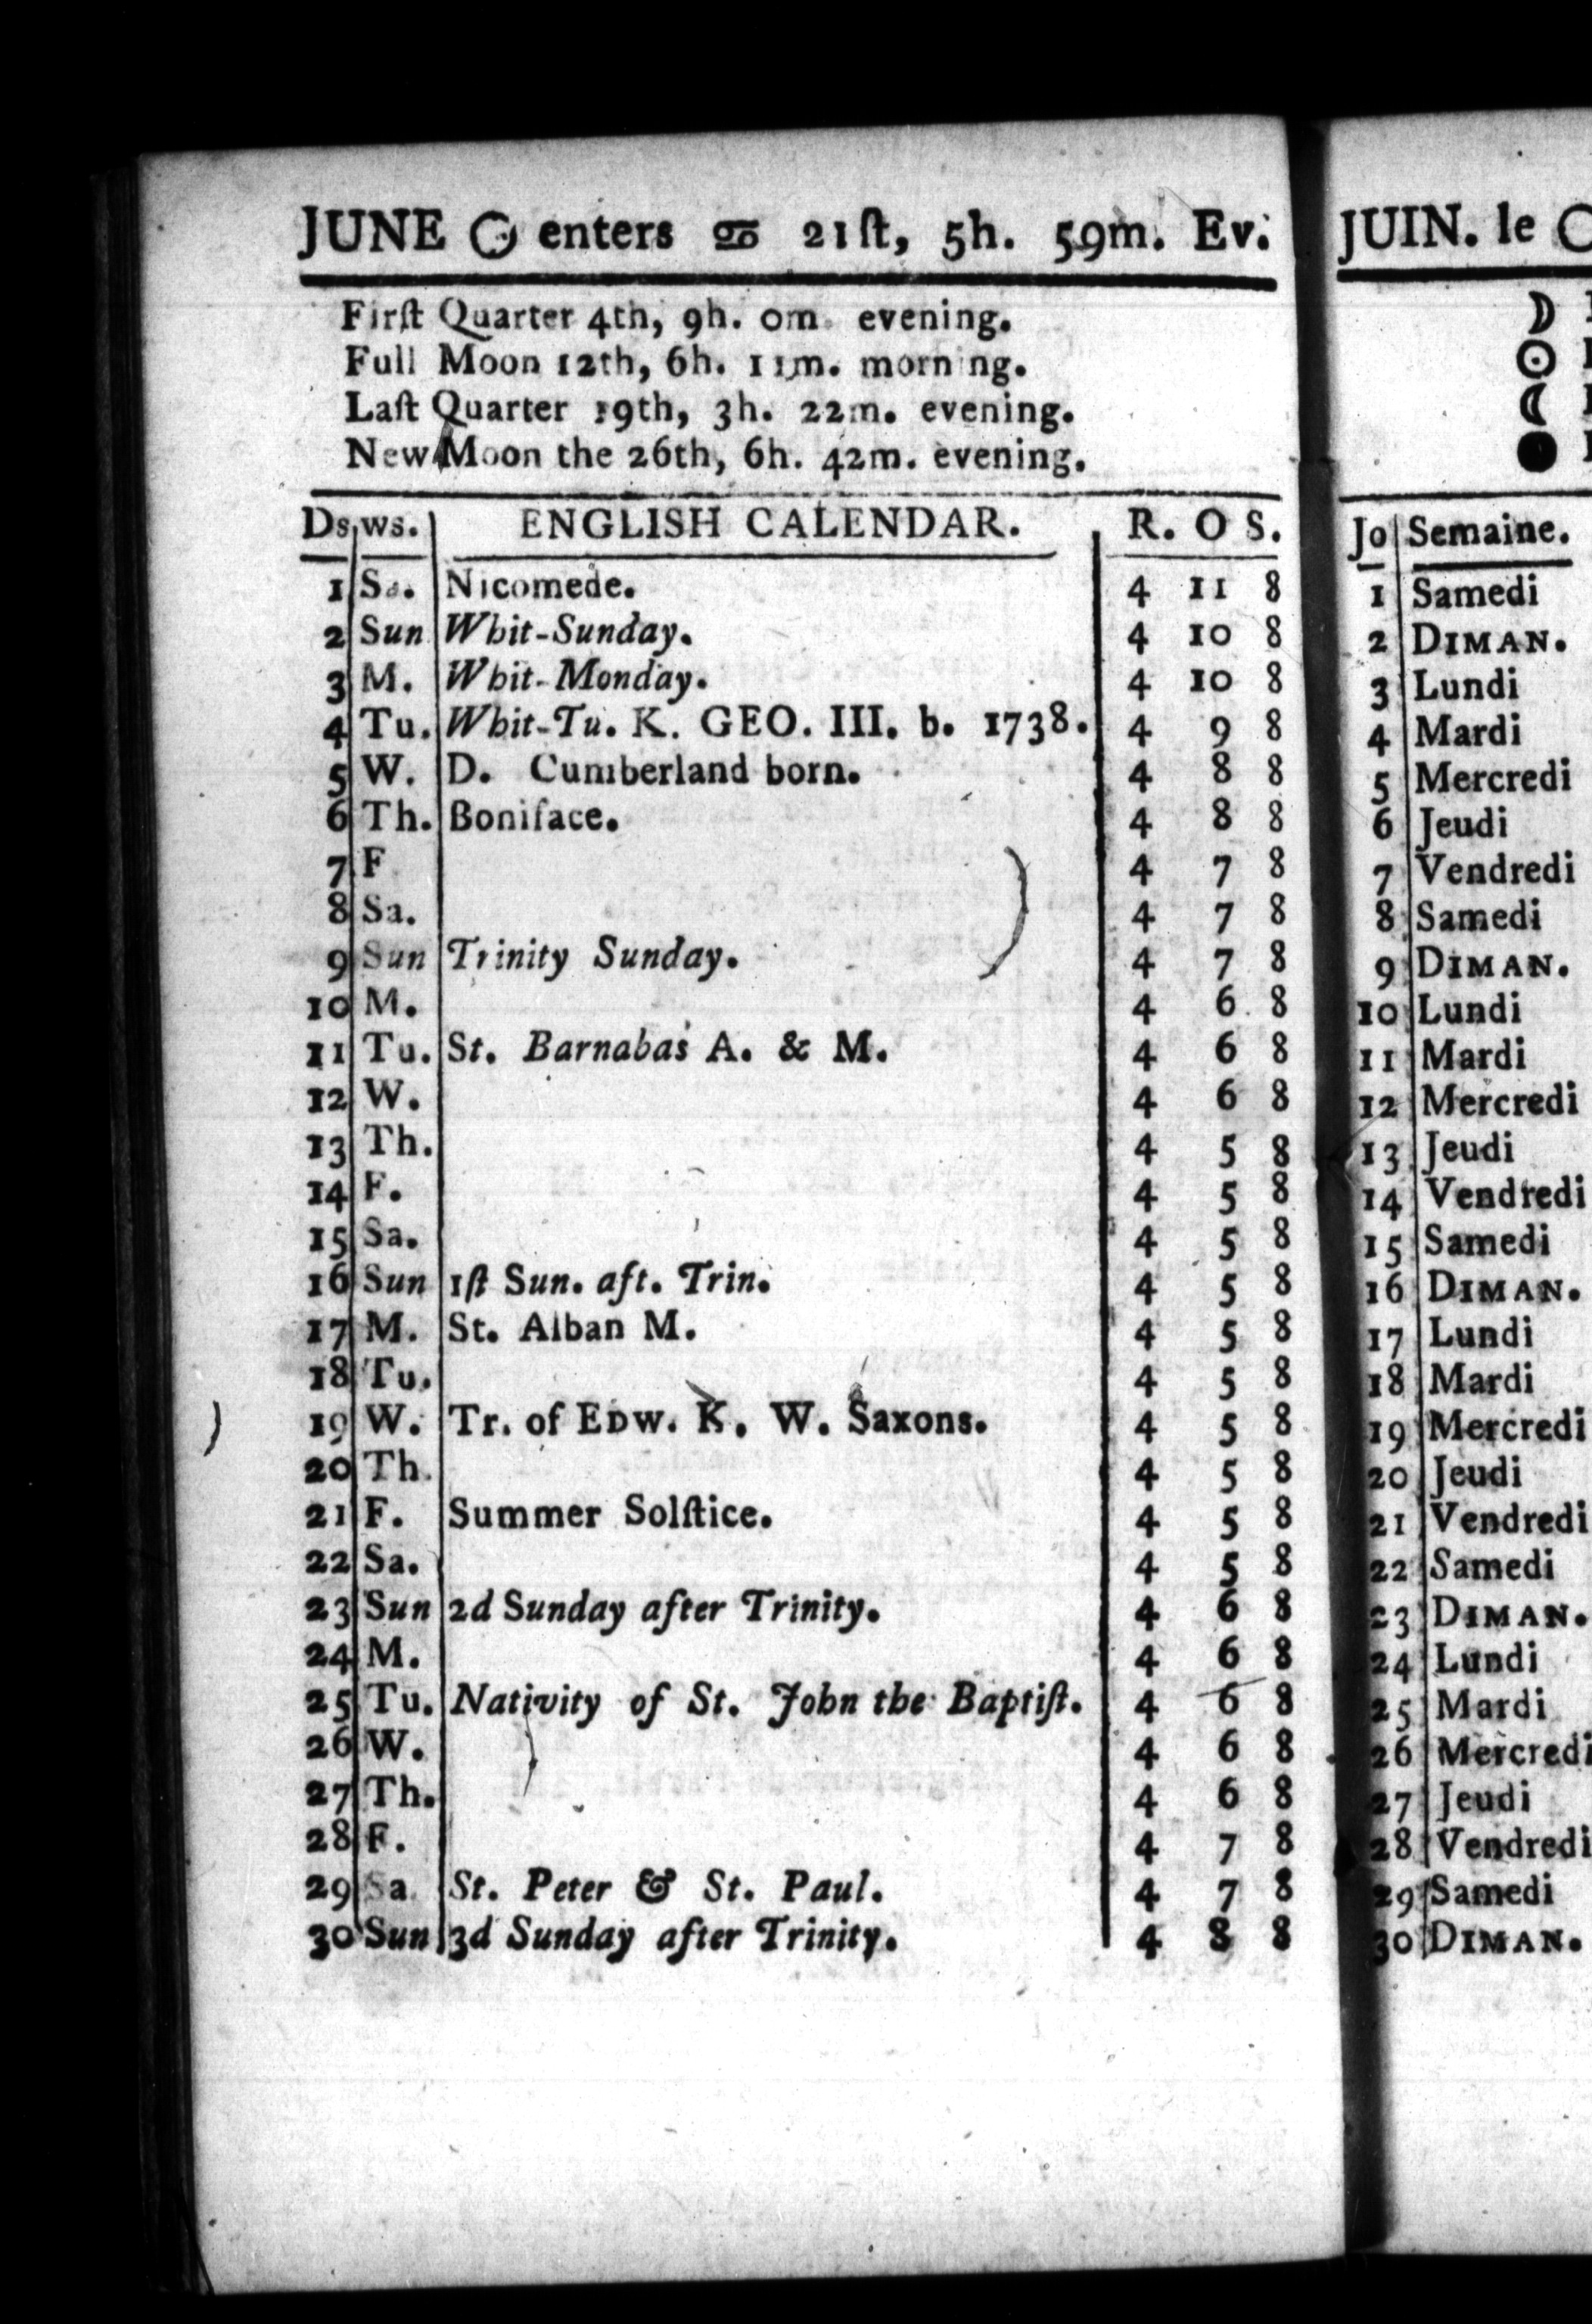 JUNE ☉ enters ♋ 21ſt, 5h. 59m. Ev.
Firſt Quarter 4th, 9h. 0m. evening.
Full Moon 12th, 6h. 11m. morning.
Laſt Quarter 19th, 3h. 22m. evening.
New Moon the 26th, 6h. 42m. evening.
Ds ws. ENGLISH CALENDAR. R. O S.
1 Sa. Nicomede. 4 11 8
2 Sun Whit-Sunday. 4 10 8
3 M. Whit-Monday. 4 10 8
4 Tu. Whit-Tu. K. GEO. III. b. 1738. 4 9 8
5 W. D. Cumberland born. 4 8 8
6 Th. Boniface. 4 8 8
7 F 4 7 8
8 Sa. 4 7 8
9 Sun Trinity Sunday. 4 7 8
10 M. 4 6 8
11 Tu. St. Barnabas A. & M. 4 6 8
12 W. 4 6 8
13 Th. 4 5 8
14 F. 4 5 8
15 Sa. 4 5 8
16 Sun 1ſt Sun. aft. Trin. 4 5 8
17 M. St. Alban M. 4 5 8
18 Tu. 4 5 8
19 W. Tr. of EDW. K. W. Saxons. 4 5 8
20 Th. 4 5 8
21 F. Summer Solſtice. 4 5 8
22 Sa. 4 5 8
23 Sun 2d Sunday after Trinity. 4 6 8
24 M. 4 6 8
25 Tu. Nativity of St. John the Baptiſt. 4 6 8
26 W. 4 6 8
27 Th. 4 6 8
28 F. 4 7 8
29 Sa St. Peter & St. Paul. 4 7 8
30 Sun 3d Sunday after Trinity. 4 8 8
JUIN. le
Jo Semaine.
1 Samedi
2 DIMAN.
3 Lundi
4 Mardi
5 Mercredi
6 Jeudi
7 Vendredi
8 Samedi
9 DIMAN.
10 Lundi
11 Mardi
12 Mercredi
13 Jeudi
14 Vendredi
15 Samedi
16 DIMAN.
17 Lundi
18 Mardi
19 Mercredi
20 Jeudi
21 Vendredi
22 Samedi
23 DIMAN.
24 Lundi
25 Mardi
26 Mercredi
27 Jeudi
28 Vendredi
29 Samedi
30 DIMAN.